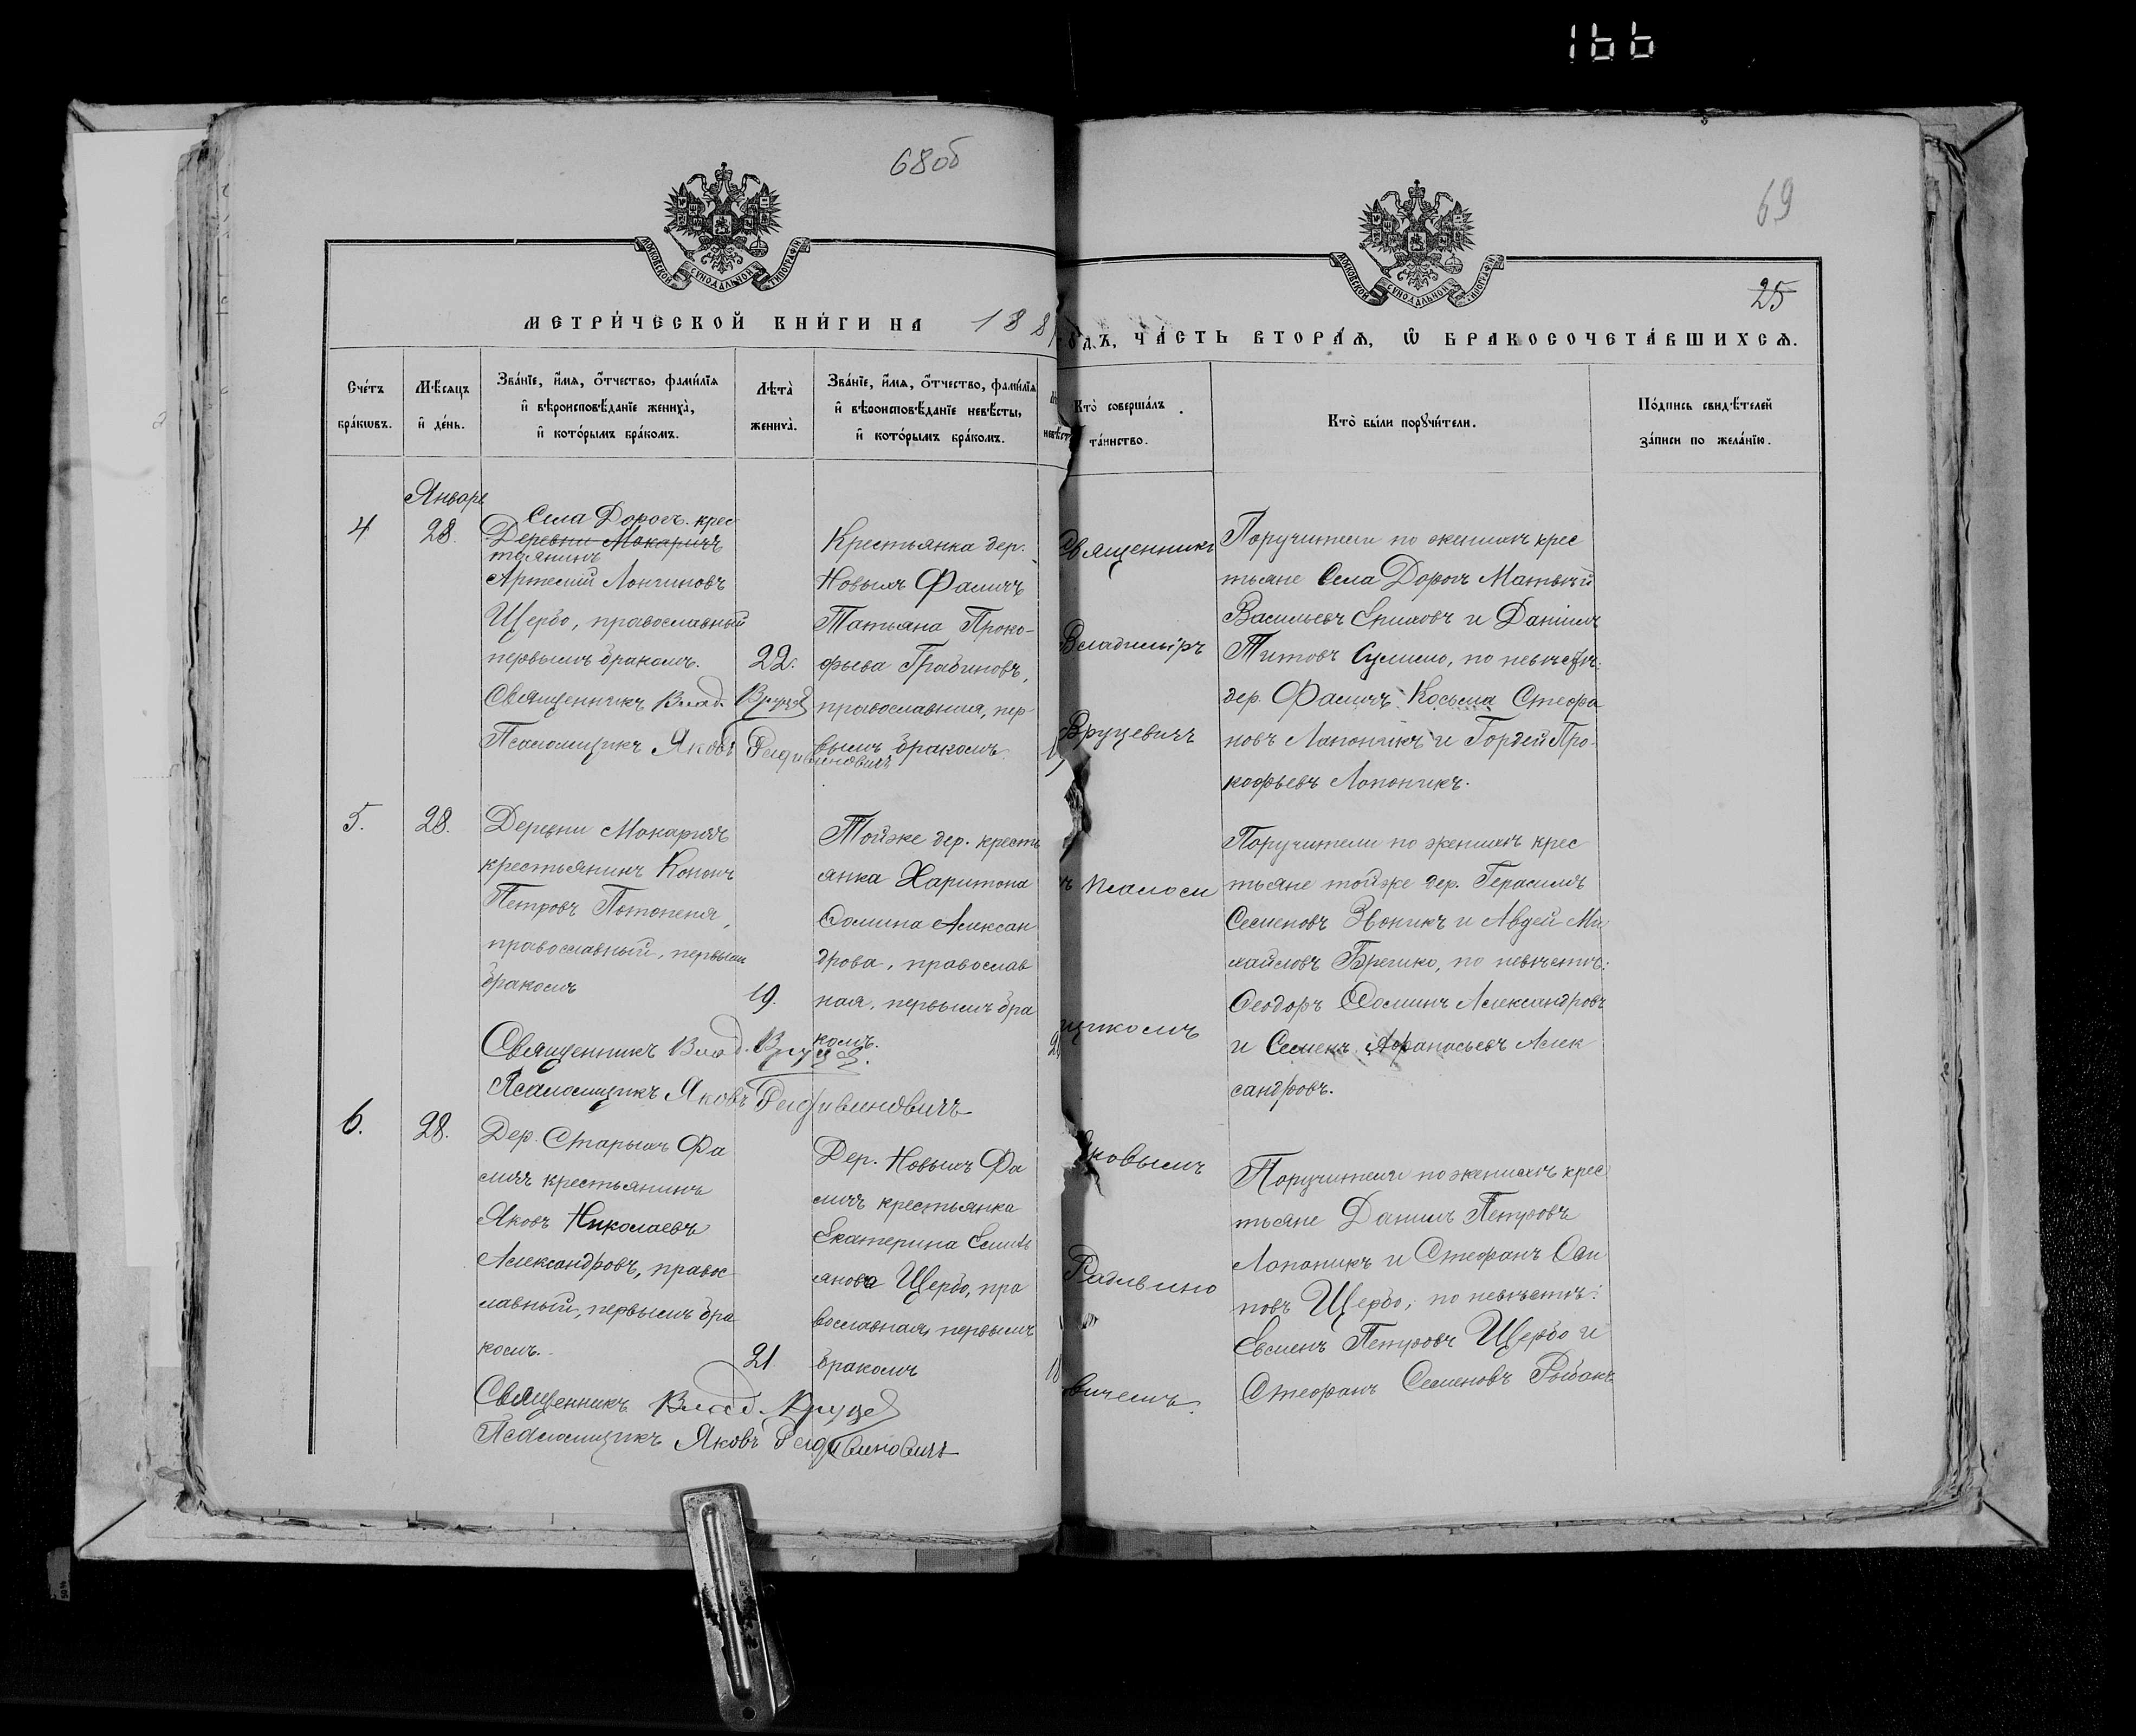 166
68об
69
25
МОСКОВСКОЙ СѴНОДАЛЬНОЙ ТИПОГРАФІИ
МОСКОВСКОЙ СѴНОДАЛЬНОЙ ТИПОГРАФІИ
МЕТРИ́ЧЕСКОЙ КНИ́ГИ НА 188
го́дъ, ЧА́СТЬ ВТОРА́Ѧ, Ѽ БРАКОСОЧЕТА́ВШИХСѦ.
Сче́тъ
бра́кѡвъ.
Мѣ́сяцъ
и҆ де́нь.
Зва́нїе, и҆́мѧ, ѻ҆́тчество, фами́лїѧ
и҆ вѣроисповѣ́данїе жениха̀,
и҆ кото́рымъ бра́комъ.
Лѣта̀
жениха̀.
Зва́нїе, и҆́мѧ, ѻ҆́тчество, фами́лїѧ
и҆ вѣроисповѣ́данїе невѣ́сты,
и҆ кото́рымъ бра́комъ.
Кто̀ соверша́лъ
та́инство.
Кто̀ бы́ли порꙋчи́тели.
По́дпись свидѣ́телей
за́писи по жела́нїю.
Январь
4
28.
Села Дорогъ. крес
Деревни Макаричъ
тьянинъ
Артемій Лонгиновъ
Щербо, православный
первымъ бракомъ.
22.
Священникъ Влад. Вруцев
Псаломщикъ Яковъ
Крестьянка дер.
Новыхъ Фаличъ
Татьяна Проко-
фьева Грабиновъ,
православная, пер-
вымъ бракомъ
Священникъ
Владиміръ
Вруцевичъ
Поручители по женихѣ крес
тьяне Села Дорогъ Матвѣй
Васильевъ Епиховъ и Даніилъ
Титовъ Сулимо, по невѣстѣ:
дер. Фаличъ Косьма Стефа
новъ Лапоникъ и Гордей Про-
кофьевъ Лопоникъ.
5.
28.
Деревни Макаричъ
крестьянинъ Кононъ
Петровъ Потопеня,
православный, первымъ
бракомъ
19.
Священникъ Влад. Вруцев.
Псаломщикъ Яковъ
Тойже дер. кресть
янка Харитона
Ѳомина Алексан
дрова, православ
ная, первымъ бра
комъ.
ъ псалом
щикомъ
Поручители по женихѣ крес
тьяне тойже дер. Герасимъ
Семеновъ Звоникъ и Авдей Ми
хайловъ Брешко, по невѣстѣ:
Ѳеодоръ Ѳоминъ Александровъ
и Семенъ Афанасьевъ Алек
сандровъ.
6.
28.
Дер. Старыхъ Фа
личъ крестьянинъ
Яковъ Николаевъ
Александровъ, правос
лавный, первымъ бра
комъ.
21.
Священникъ Влад. Вруцев
Псаломщикъ Яковъ
Дер. Новыхъ Фа
личъ крестьянка
Екатерина Емиль
янова Щербо, пра
вославная, первымъ
бракомъ
18
Яковымъ
вичемъ.
Поручители по женихѣ крес
тьяне Даніилъ Петровъ
Лопоникъ и Стефанъ Оси
повъ Щербо; по невѣстѣ:
Евменъ Петровъ Щербо и
Стефанъ Семеновъ Рыбакъ